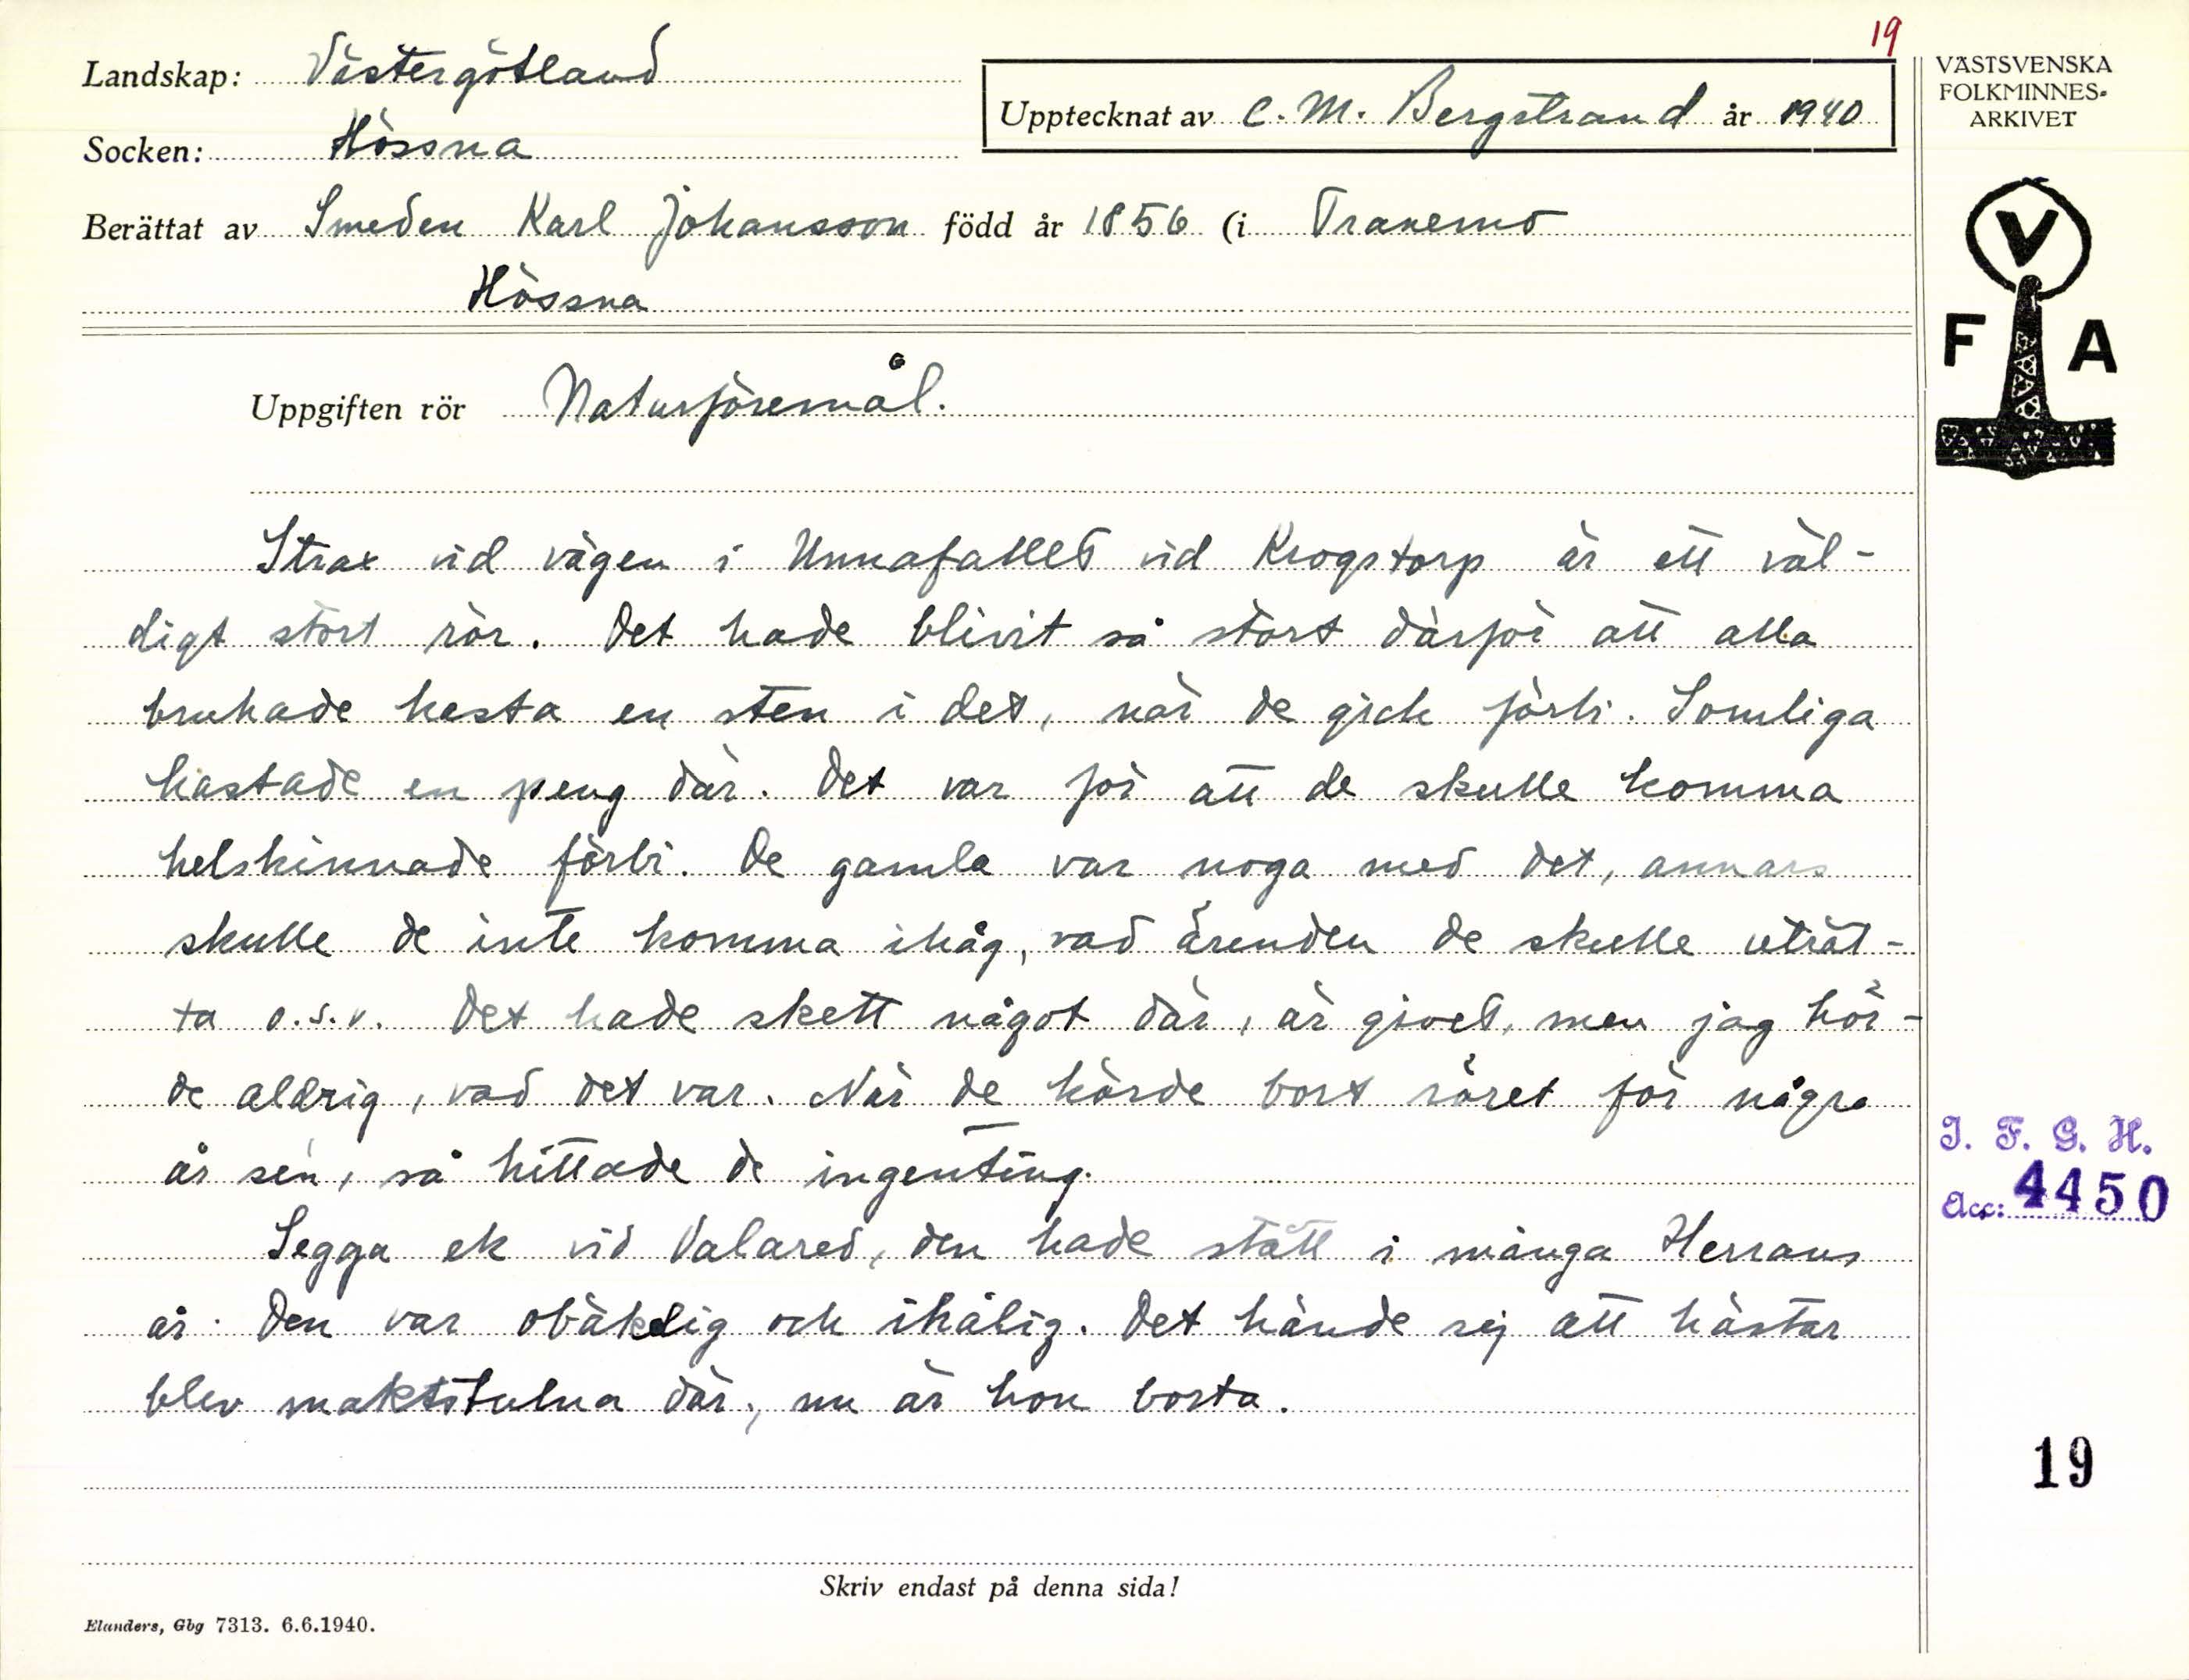 19
Landskap: Västergötland
Upptecknat av C. M. Bergstrand år 1940
Socken: Hössna
Berättat av Smeden Karl Johansson född år 1856 (i Tranemo
Hössna
VÄSTSVENSKA
FOLKMINNES-
ARKIVET
V
F A
Uppgiften rör Naturföremål.
Strax vid vägen i Unnafallet vid Krogstorp är ett väl-
digt stort rör. Det hade blivit så stort därför att alla
brukade kasta en sten i det, när de gick förbi. Somliga
kastade en peng där. Det var för att de skulle komma
helskinnade förbi. De gamla var noga med det, annars
skulle de inte komma ihåg, vad ärenden de skulle uträt-
ta o.s.v. Det hade skett något där, är givet, men jag hör-
de aldrig, vad det var. När de körde bort röret för några
år sen, så hittade de ingenting.
Segga ek vid Valared, den hade stått i många Herrans
år. Den var obäkelig och ihålig. Det hände sej att hästar
blev maktstulna där, nu är hon borta.
I. F. G. H.
Acc: 4450
19
Skriv endast på denna sida!
Elanders, Gbg 7313. 6.6.1940.